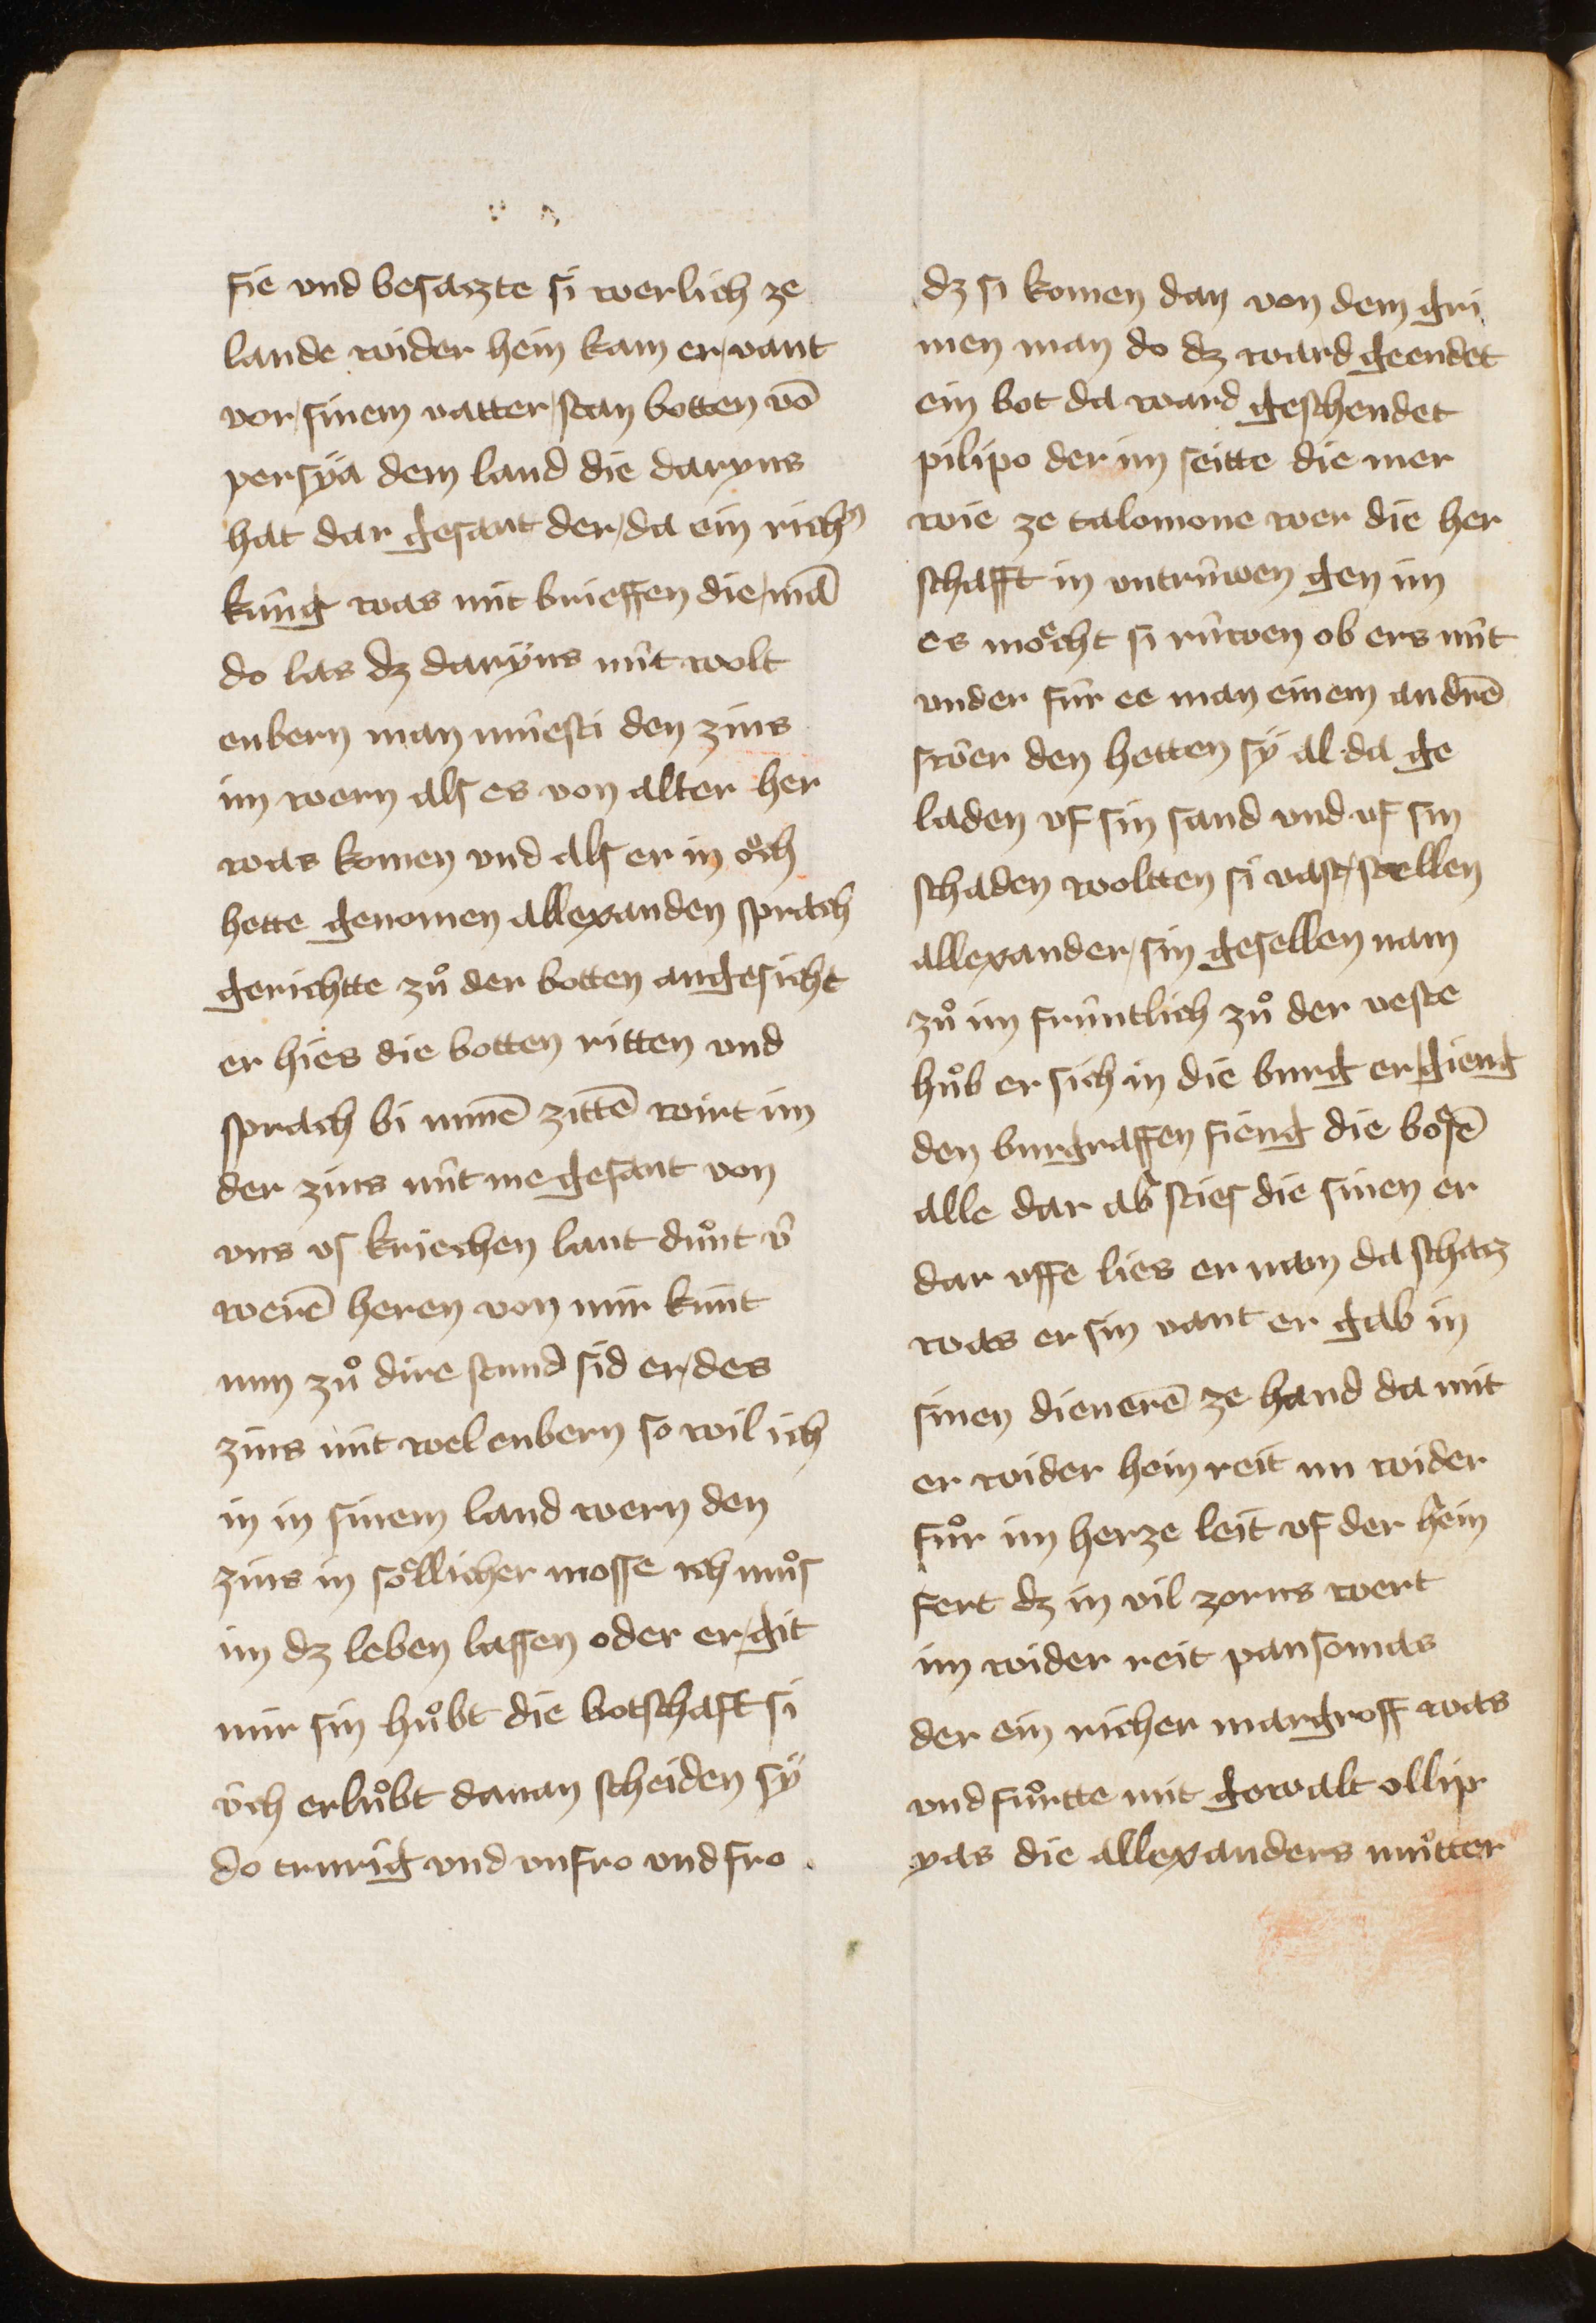 sie vnd besaczte si werlich ze
lande wider hein kam er vant
vor sinem vatter stan botten vō
persÿa dem land die daryus
hat dar gesant der da ein richꝰ
kúng was mit brieffen die mā
do las dz darÿus nút wolt
enbern man múesti den zins
im wern als es von alter her
was komen vnd als er in oͮch
hette genomen allexanden sprach
gerichtte zuͦ der botten angesicht
er hies die botten ritten vnd
sprach bi minē zittē wirt im
der zins nút me gesant von
vns vs kriechen lant duͦnt v́
werē heren von mir kunt
nun zuͦ dire stund sid er des
zins nút wel enbern so wil ich
in in sinem land wern den
zins in soͤllicher mosse ich muͦs
im dz leben lassen oder er git
mir sin huͦbt die botschaft si
v́ch erluͦbt danan scheiden sÿ
do trurig vnd vnfro vnd fro
dz si komen dan von dem gri
men man do dz ward geendet
ein bot da ward geschendet
pilipo der im seitte die mer
wie ze talomone wer die her
schafft in vntrúwen gen im
es moͤcht si rúwen ob ers nút
vnder fúr ee man einem andrē
swer den hetten sÿ al da ge
laden vf sin sand vnd vf sin
schaden woltten si vast stellen
allexander sin gesellen nam
zuͦ im frúntlich zuͦ der veste
huͦb er sich in die burg er gieng
den burgraffen fieng die boͤsē
alle dar ab sties die sinen er
dar vffe lies er man da schacz
was er sin vant er gab in
sinen dienerē ze hand da mit
er wider hein reit nu wider
fuͦr im herze leit vf der hein
fert dz in vil zorns wert
im wider reit pansomas
der ein richer margroff was
vnd fuͦrtte mit gewalt ollip
yas die allexanders muͦtter